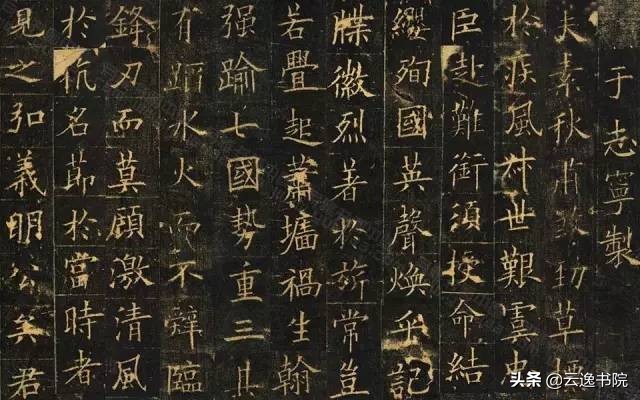 于志寧製
夫素秋肅煞勁草標
於疾風叔世艱虞忠
臣赴難銜須授命結
纓殉國英聲煥乎記
牒徽烈著於旂常豈
若舋起蕭墻禍生翰
強踰七國勢重三其
有蹈水火而不辭臨
鋒刃而莫顧激清風
於抗名節於當時者
見之弘義明公矣君
头条 @云逸书院